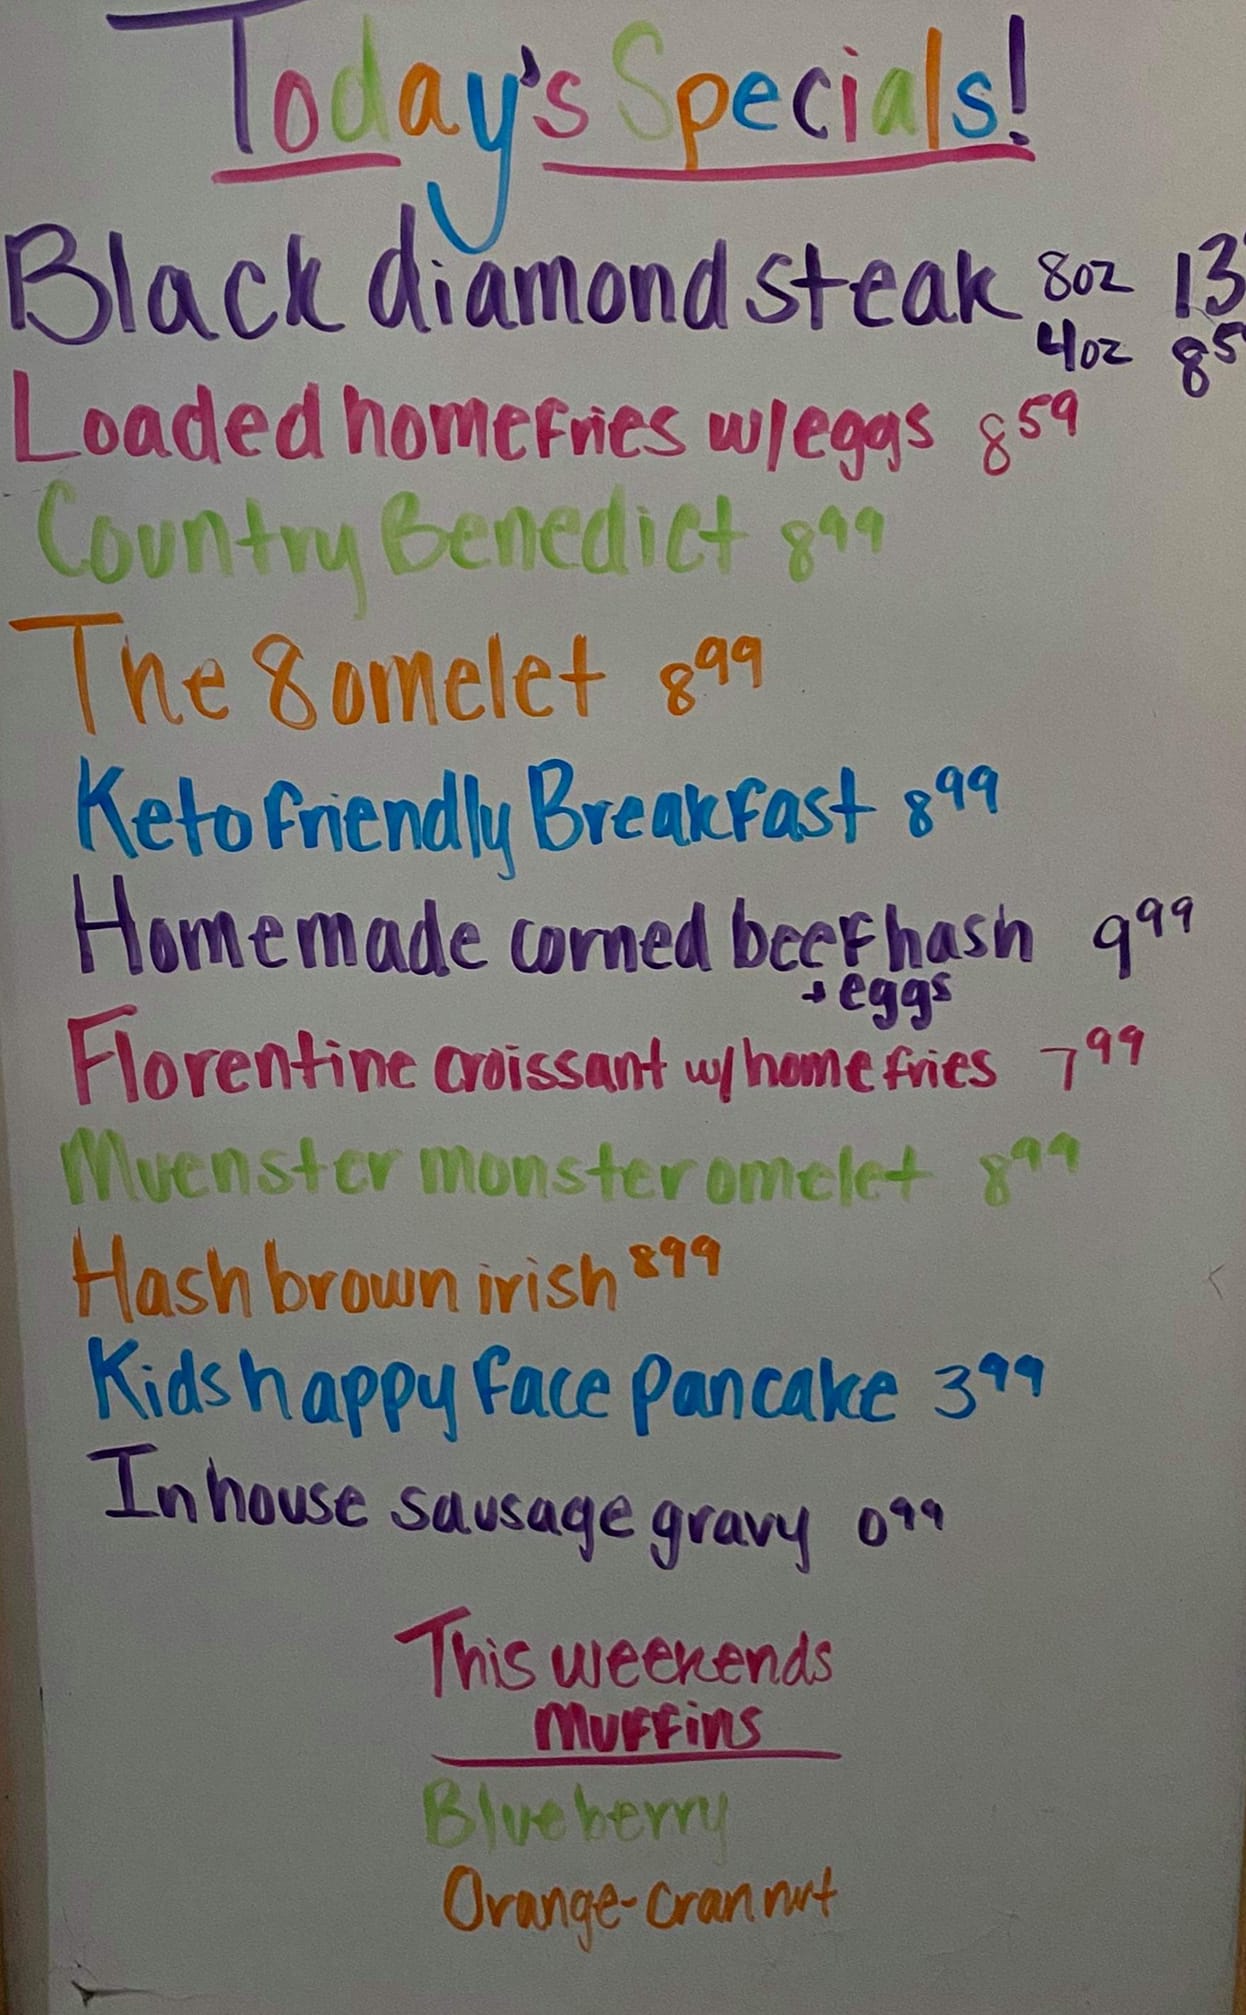 Today's Specials!
Black diamond steak 8oz 13
4oz 85
Loaded homefries w/eggs 8 59
Country Benedict 8 99
The 8 omelet 8 99
Keto friendly Breakfast 8 99
Homemade corned beef hash 9 99
+ eggs
Florentine croissant w/home fries 7 99
Muenster monster omelet 8 99
Hash brown irish 8 99
Kids happy face pancake 3 99
In house sausage gravy 0 99
This weekends
muffins
Blueberry
Orange-cran nut